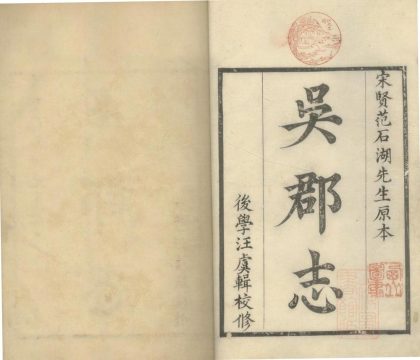 宋賢范石湖先生原本
吳郡志
後學汪虞輯校修